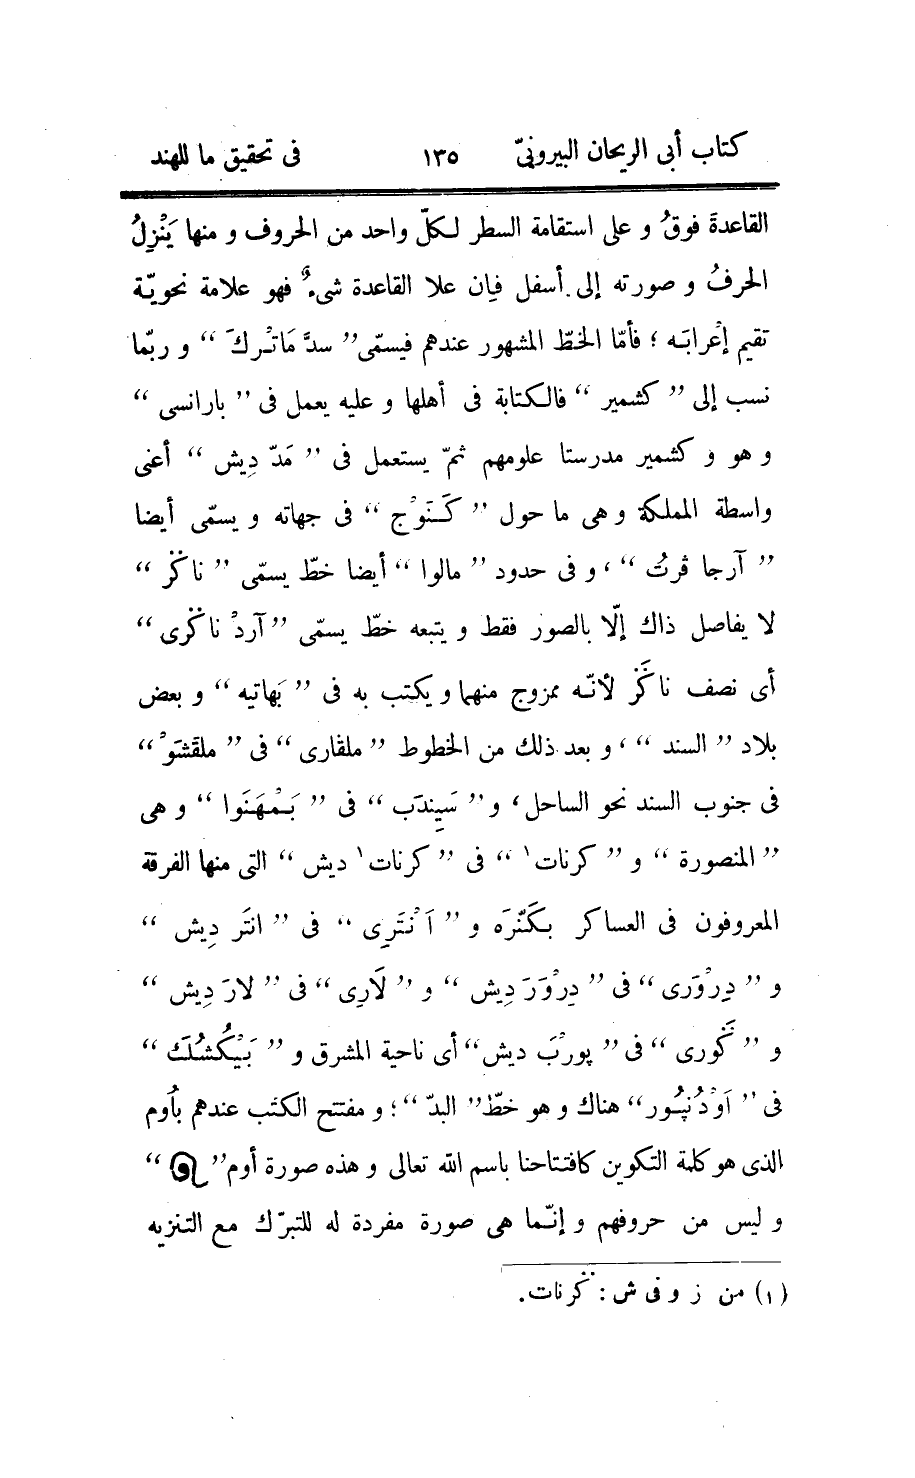 كتاب أبى الريحان البيرونىّ ١٣٥ فى تحقيق ما للهند
القاعدةَ فوقُ و على استقامة السطر لـكلّ واحد من الحروف و منها يَنْزِلُ
الحرفُ و صورته إلى أسفل فإن علا القاعدة شىءٌ فهو علامة نحويّة
تقيم إعْرابَه ؛ فأمّا الخطّ المشهور عندهم فيسمّى ” سدَّ مَاتْرِكَ “ و ربّما
نسب إلى ” كشمير “ فالكتابة فى أهلها و عليه يعمل فى ” بارانسى “
و هو و كشمير مدرستا علومهم ثمّ يستعمل فى ” مَدّ دِيش “ أعنى
واسطة المملكة و هى ما حول ” كَـنَوْج “ فى جهاته و يسمّى أيضا
” آرجا ڤرتُ “، و فى حدود ” مالوا “ أيضا خطّ يسمّى ” ناڭر “
لا يفاصل ذاك إلّا بالصور فقط و يتبعه خطّ يسمّى ” آردْ ناڭرى “
أى نصف ناڭَر لأنّه ممزوج منهما و يكتب به فى ” بَهاتيه “ و بعض
بلاد ” السند “، و بعد ذلك من الخطوط ” ملقارى “ فى ” ملقَشَوْ “
فى جنوب السند نحو الساحل، و ” سَيِندَب “ فى ” بَـمْهَنَوا “ و هى
” المنصورة “ و ” كرنات ١ “ فى ” كرنات ١ ديش “ التى منها الفرقة
المعروفون فى العساكر بـكَنّرَه و ” اَنْتَرِى “ فى ” انتَر دِيش “
و ” دِرْوَرى “ فى ” دِرْوَرَ دِيش “ و ” لَارِى “ فى ” لارَ دِيش “
و ” ڭَورى “ فى ” پورْبَ ديش “ أى ناحية المشرق و ” بَيْكْشُكَ “
فى ” اَوْدُنپُـور “ هناك و هو خطّ ” البدّ “؛ و مفتتح الكتب عندهم بأُوم
الذى هو كلمة التكوين كافتتاحنا باسم الله تعالى و هذه صورة أوم ” “
و ليس من حروفهم و إنّـما هى صورة مفردة له للتبرّك مع التنزيه
(١) من ز و فى ش : ڭرنات.